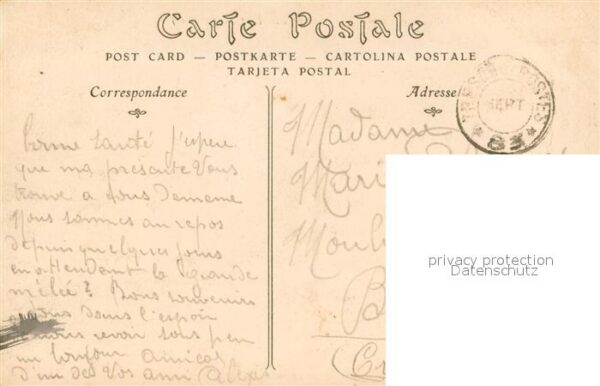 Carte Postale
POST CARD — POSTKARTE — CARTOLINA POSTALE
TARJETA POSTAL
Correspondance
Adresse
TRESOR POSTES
SEPT
* 83 *
bonne santé J'espere
que ma présente Vous
trouve a tous De meme
Nous sommes au repos
depuis quelques jours
en attendant la grande
mêlée? Bons souvenirs
a tous dans l'espoir
revoir sous peu
un bonjour amical
d'un de Vos ami Alexis
Madame
Mari
Moul
privacy protection
Datenschutz